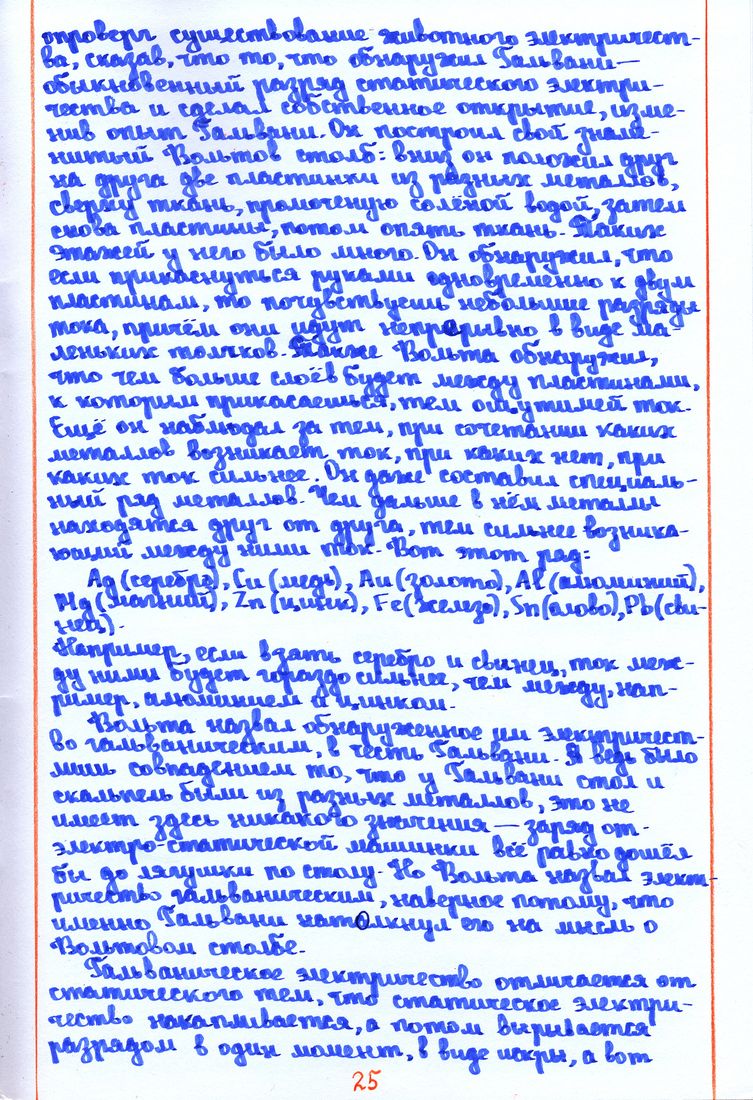 опроверг существование животного электричест-
ва, сказав, что то, что обнаружил Гальвани —
обыкновенный разряд статического электри-
чества и сделал собственное открытие, изме-
нив опыт Гальвани. Он построил свой знаме-
нитый Вольтов столб: вниз он положил друг
на друга две пластинки из разных металлов,
сверху ткань, промоченую солёной водой, затем
снова пластины, потом опять ткань. Таких
этажей у него было много. Он обнаружил, что
если прикаснуться руками одновременно к двум
пластинам, то почувствуешь небольшие разряды
тока, причём они идут непрерывно в виде ма-
леньких толчков. Также Вольта обнаружил,
что чем больше слоёв будет между пластинами,
к которым прикасаешься, тем ощутимей ток.
Ещё он наблюдал за тем, при сочетании каких
металлов возникает ток, при каких нет, при
каких ток сильнее. Он даже составил специаль-
ный ряд металлов. Чем дальше в нём металлы
находятся друг от друга, тем сильнее возника-
ющий между ними ток. Вот этот ряд:
Ag (серебро), Cu (медь), Au (золото), Al (алюминий),
Mg (магний), Zn (цинк), Fe (железо), Sn (олово), Pb (сви-
нец).
Например, если взать серебро и свинец, ток меж-
ду ними будет гораздо сильнее, чем между, нап-
ример, алюминием и цинком.
Вольта назвал обнаруженное им электричест-
во гальваническим, в честь Гальвани. А ведь было
лишь совпадением то, что у Гальвани стол и
скальпель были из разных металлов, это не
имеет здесь никакого значения — заряд от
электро-статической машинки всё равно дошёл
бы до лягушки по столу. Но Вольта назвал элект-
ричество гальваническим, наверное потому, что
именно Гальвани натолкнул его на мысль о
Вольтовом столбе.
Гальваническое электричество отличается от
статического тем, что статическое электри-
чество накапливается, а потом вырывается
разрядом в один момент, в виде искры, а вот
25